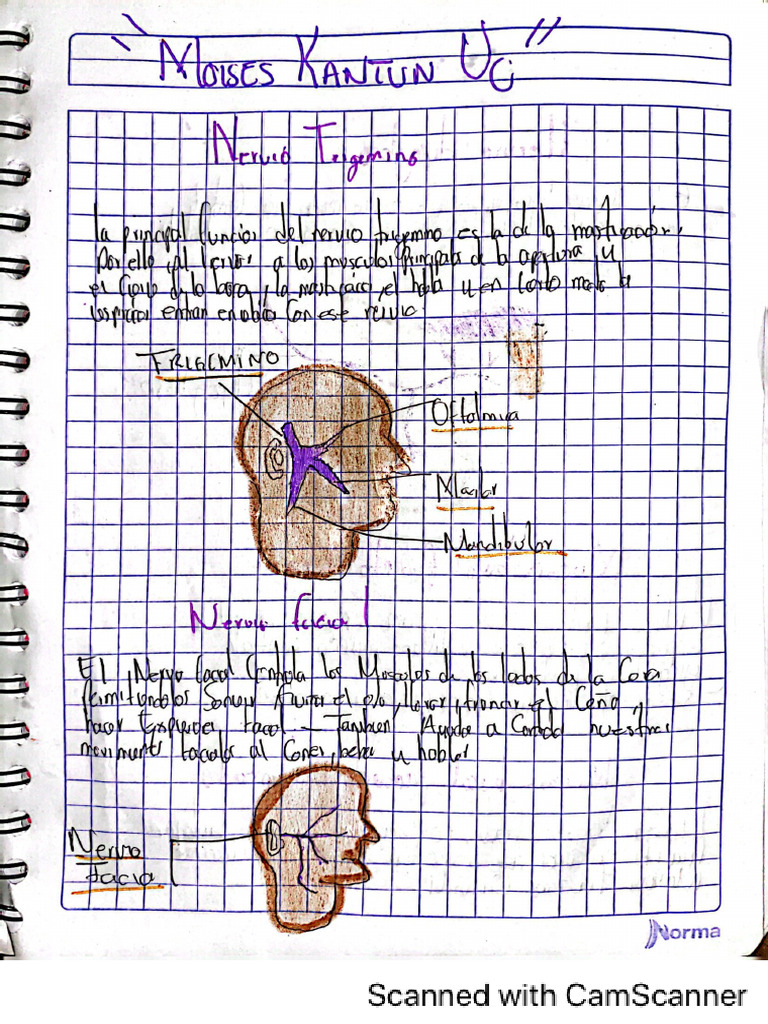 "Moises Kantun Uc"
Nervio Trigemino
la principal funcion del nervio trigemino es la de la masticación.
Por ello al a los musculos principales de la apertura y
el cierre de la boca, la masticacion, el habla y en cierto modo la
entran en con este nervio.
TRIGEMINO
Oftalmica
Maxilar
Mandibular
Nervio facial
El Nervio facial Controla los Musculos de los lados de la Cara
Permitiendolos Sonreir el ojo, llorar, fruncir el Ceño y
hacer facial. Tambien Ayuda a nuestros
movimientos faciales al Comer, beber y hablar
Nervio
facial
Norma
Scanned with CamScanner